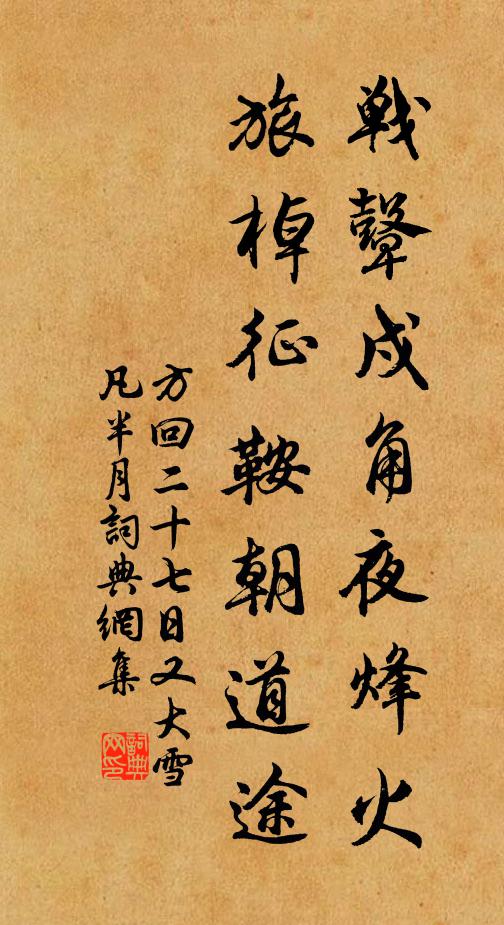 戦鼙戍角夜烽火
旅棹征鞍朝道途
方回二十七日又大雪
凡半月詞典網集
詞典
网印